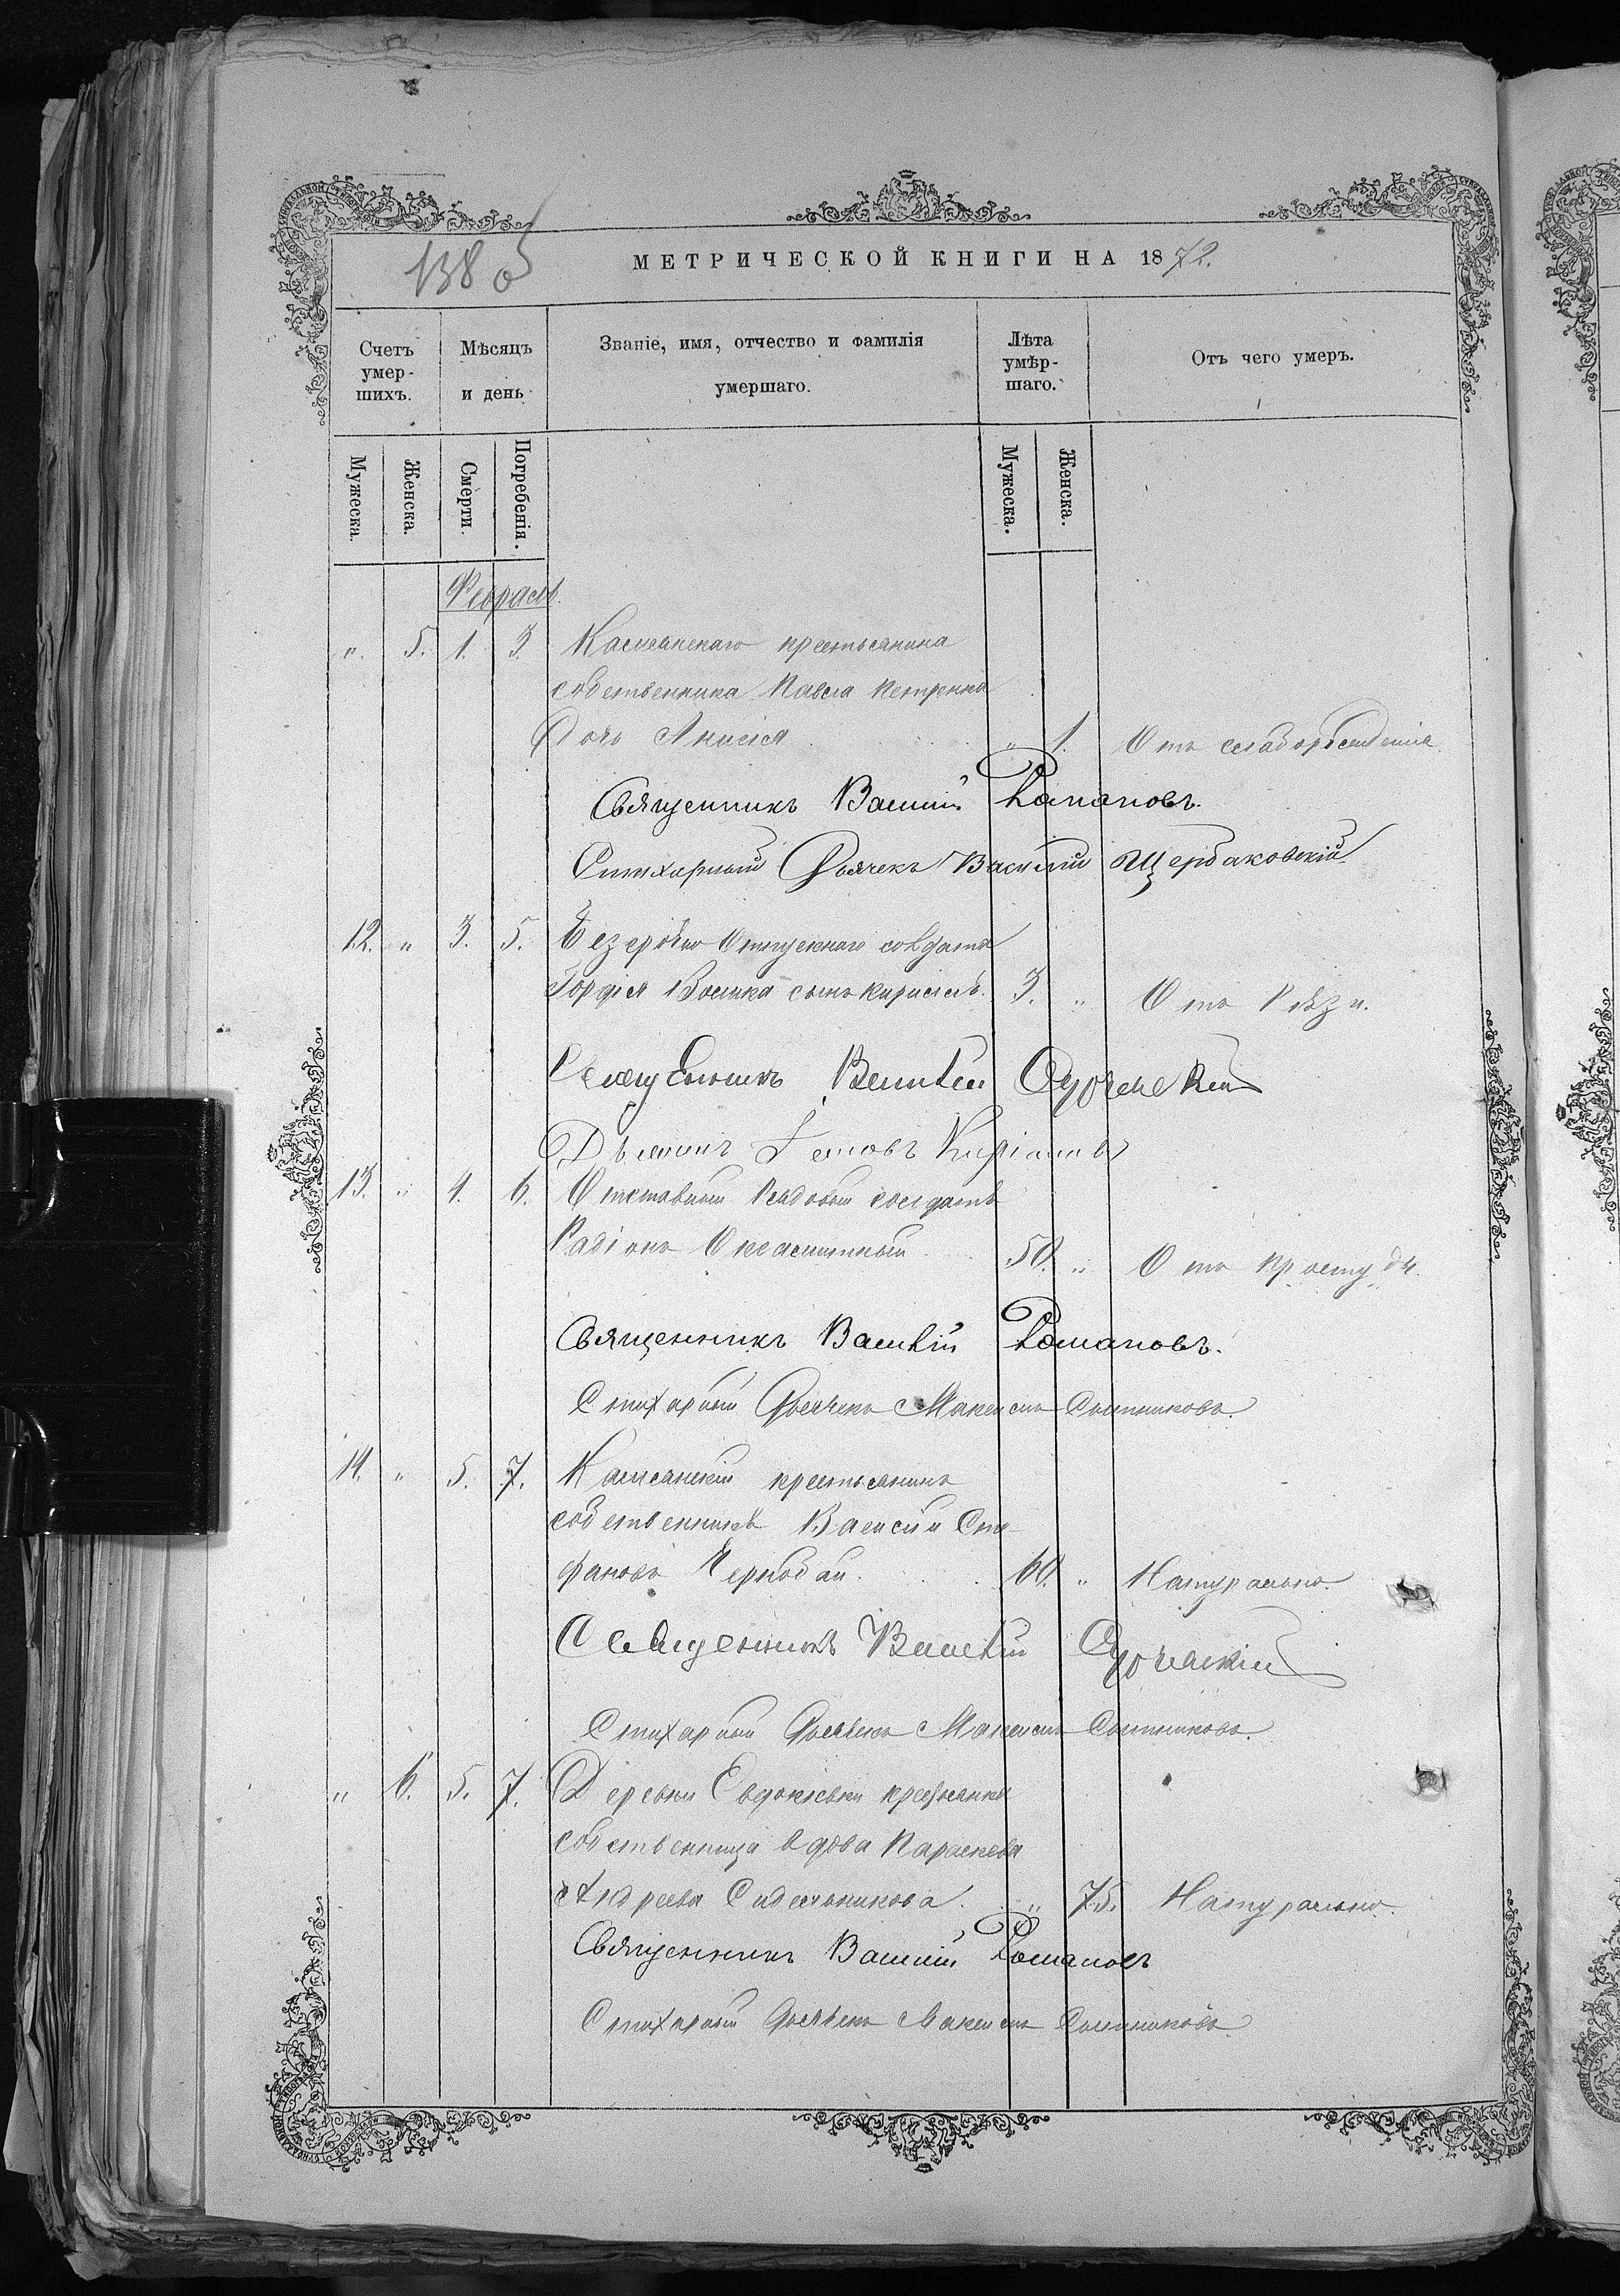 138 об
МЕТРИЧЕСКОЙ КНИГИ НА 1872.
Счетъ умер-шихъ.
Мѣсяцъ и день
Званіе, имя, отчество и фамилія умершаго.
Лѣта умѣр-шаго.
Отъ чего умеръ.
Мужеска.
Женска.
Смерти.
Погребенія.
Мужеска.
Женска.
Февраль
" 5. 1. 3. крестьянина
собственника Павла Петренка
Дочь Анисія " 1. Отъ
Священникъ Василій Романовъ.
Стихарный Дьячекъ Василій Щербаковскій
12. " 3. 5. Безсрочно Отпускнаго солдата
Гордія сынъ Кириллъ. 3. " Отъ
Священникъ Василій
13. " 4. 6. Отставный Рядовый солдатъ
Радіонъ 50. " Отъ простуды.
Священникъ Василій Романовъ.
Стихарный Дьячекъ Максимъ
14. " 5. 7. крестьянинъ
собственникъ Василій Сте-
фановъ 60. " Натурально.
Священникъ Василій
Стихарный Дьячекъ Максимъ
" 6. 5. 7. Деревни Евдокіевки крестьянка
собственница вдова Параскева
Андреева Сидельникова. " 75. Натурально.
Священникъ Василій Романовъ
Стихарный Дьячекъ Максимъ